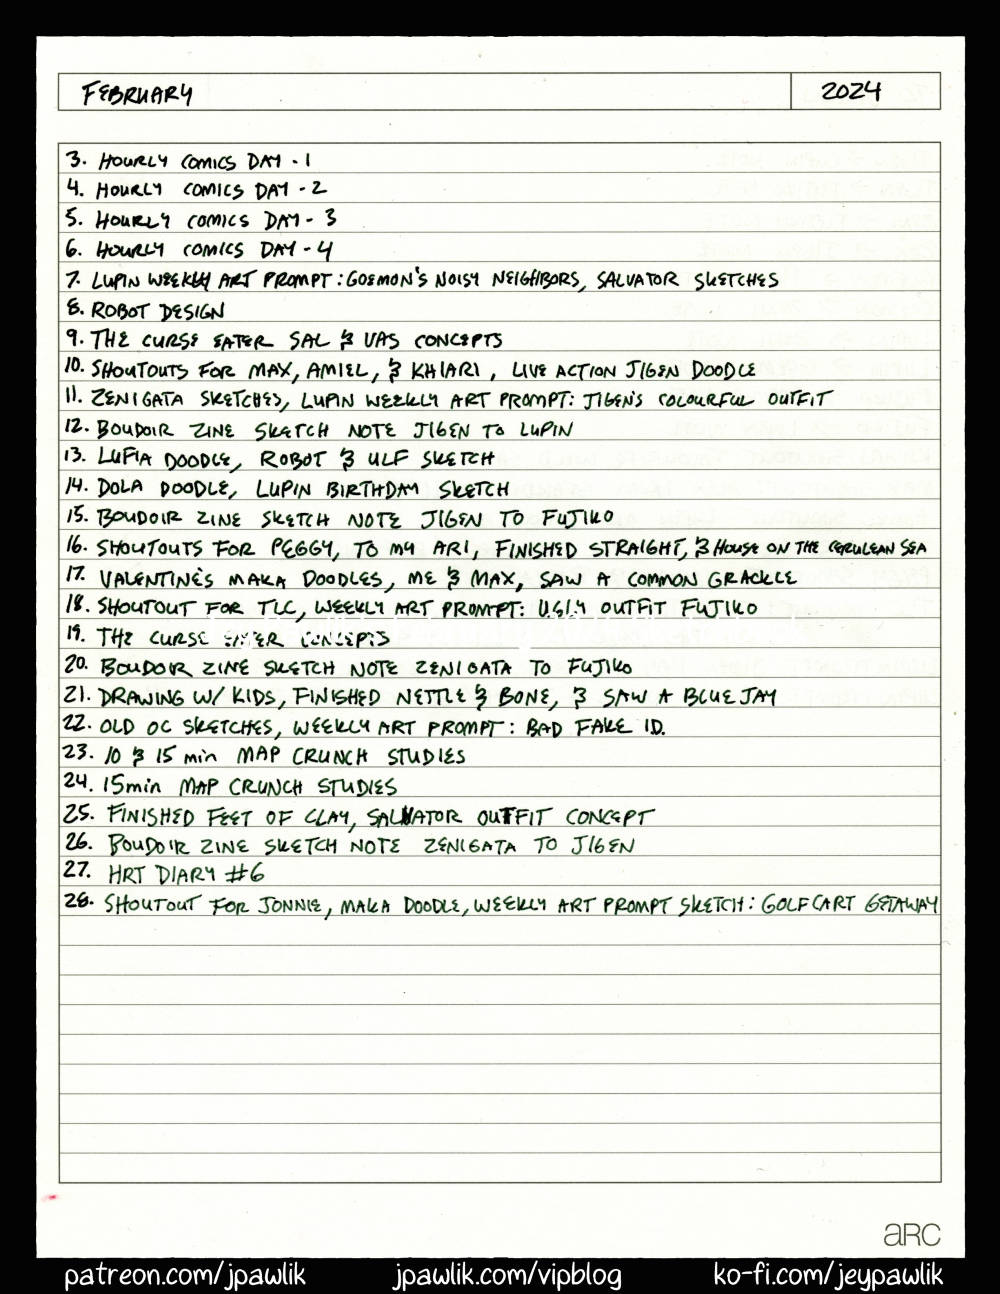 FEBRUARY 2024
3. HOURLY COMICS DAY - 1
4. HOURLY COMICS DAY - 2
5. HOURLY COMICS DAY - 3
6. HOURLY COMICS DAY - 4
7. LUPIN WEEKLY ART PROMPT: GOEMON'S NOISY NEIGHBORS, SALVATOR SKETCHES
8. ROBOT DESIGN
9. THE CURSE EATER SAL & VAS CONCEPTS
10. SHOUTOUTS FOR MAX, AMIEL, & KHIARI, LIVE ACTION JIGEN DOODLE
11. ZENIGATA SKETCHES, LUPIN WEEKLY ART PROMPT: JIGEN'S COLOURFUL OUTFIT
12. BOUDOIR ZINE SKETCH NOTE JIGEN TO LUPIN
13. LUFIA DOODLE, ROBOT & ULF SKETCH
14. DOLA DOODLE, LUPIN BIRTHDAY SKETCH
15. BOUDOIR ZINE SKETCH NOTE JIGEN TO FUJIKO
16. SHOUTOUTS FOR PEGGY, TO MY ARI, FINISHED STRAIGHT, & HOUSE ON THE CERULEAN SEA
17. VALENTINE'S MAKA DOODLES, ME & MAX, SAW A COMMON GRACKLE
18. SHOUTOUT FOR TLC, WEEKLY ART PROMPT: UGLY OUTFIT FUJIKO
19. THE CURSE EATER CONCEPTS
20. BOUDOIR ZINE SKETCH NOTE ZENIGATA TO FUJIKO
21. DRAWING W/ KIDS, FINISHED NETTLE & BONE, & SAW A BLUE JAY
22. OLD OC SKETCHES, WEEKLY ART PROMPT: BAD FAKE I.D.
23. 10 & 15 min MAP CRUNCH STUDIES
24. 15min MAP CRUNCH STUDIES
25. FINISHED FEET OF CLAY, SALVATOR OUTFIT CONCEPT
26. BOUDOIR ZINE SKETCH NOTE ZENIGATA TO JIGEN
27. HRT DIARY #6
28. SHOUTOUT FOR JONNIE, MAKA DOODLE, WEEKLY ART PROMPT SKETCH: GOLF CART GETAWAY
aRC
patreon.com/jpawlik jpawlik.com/vipblog ko-fi.com/jeypawlik